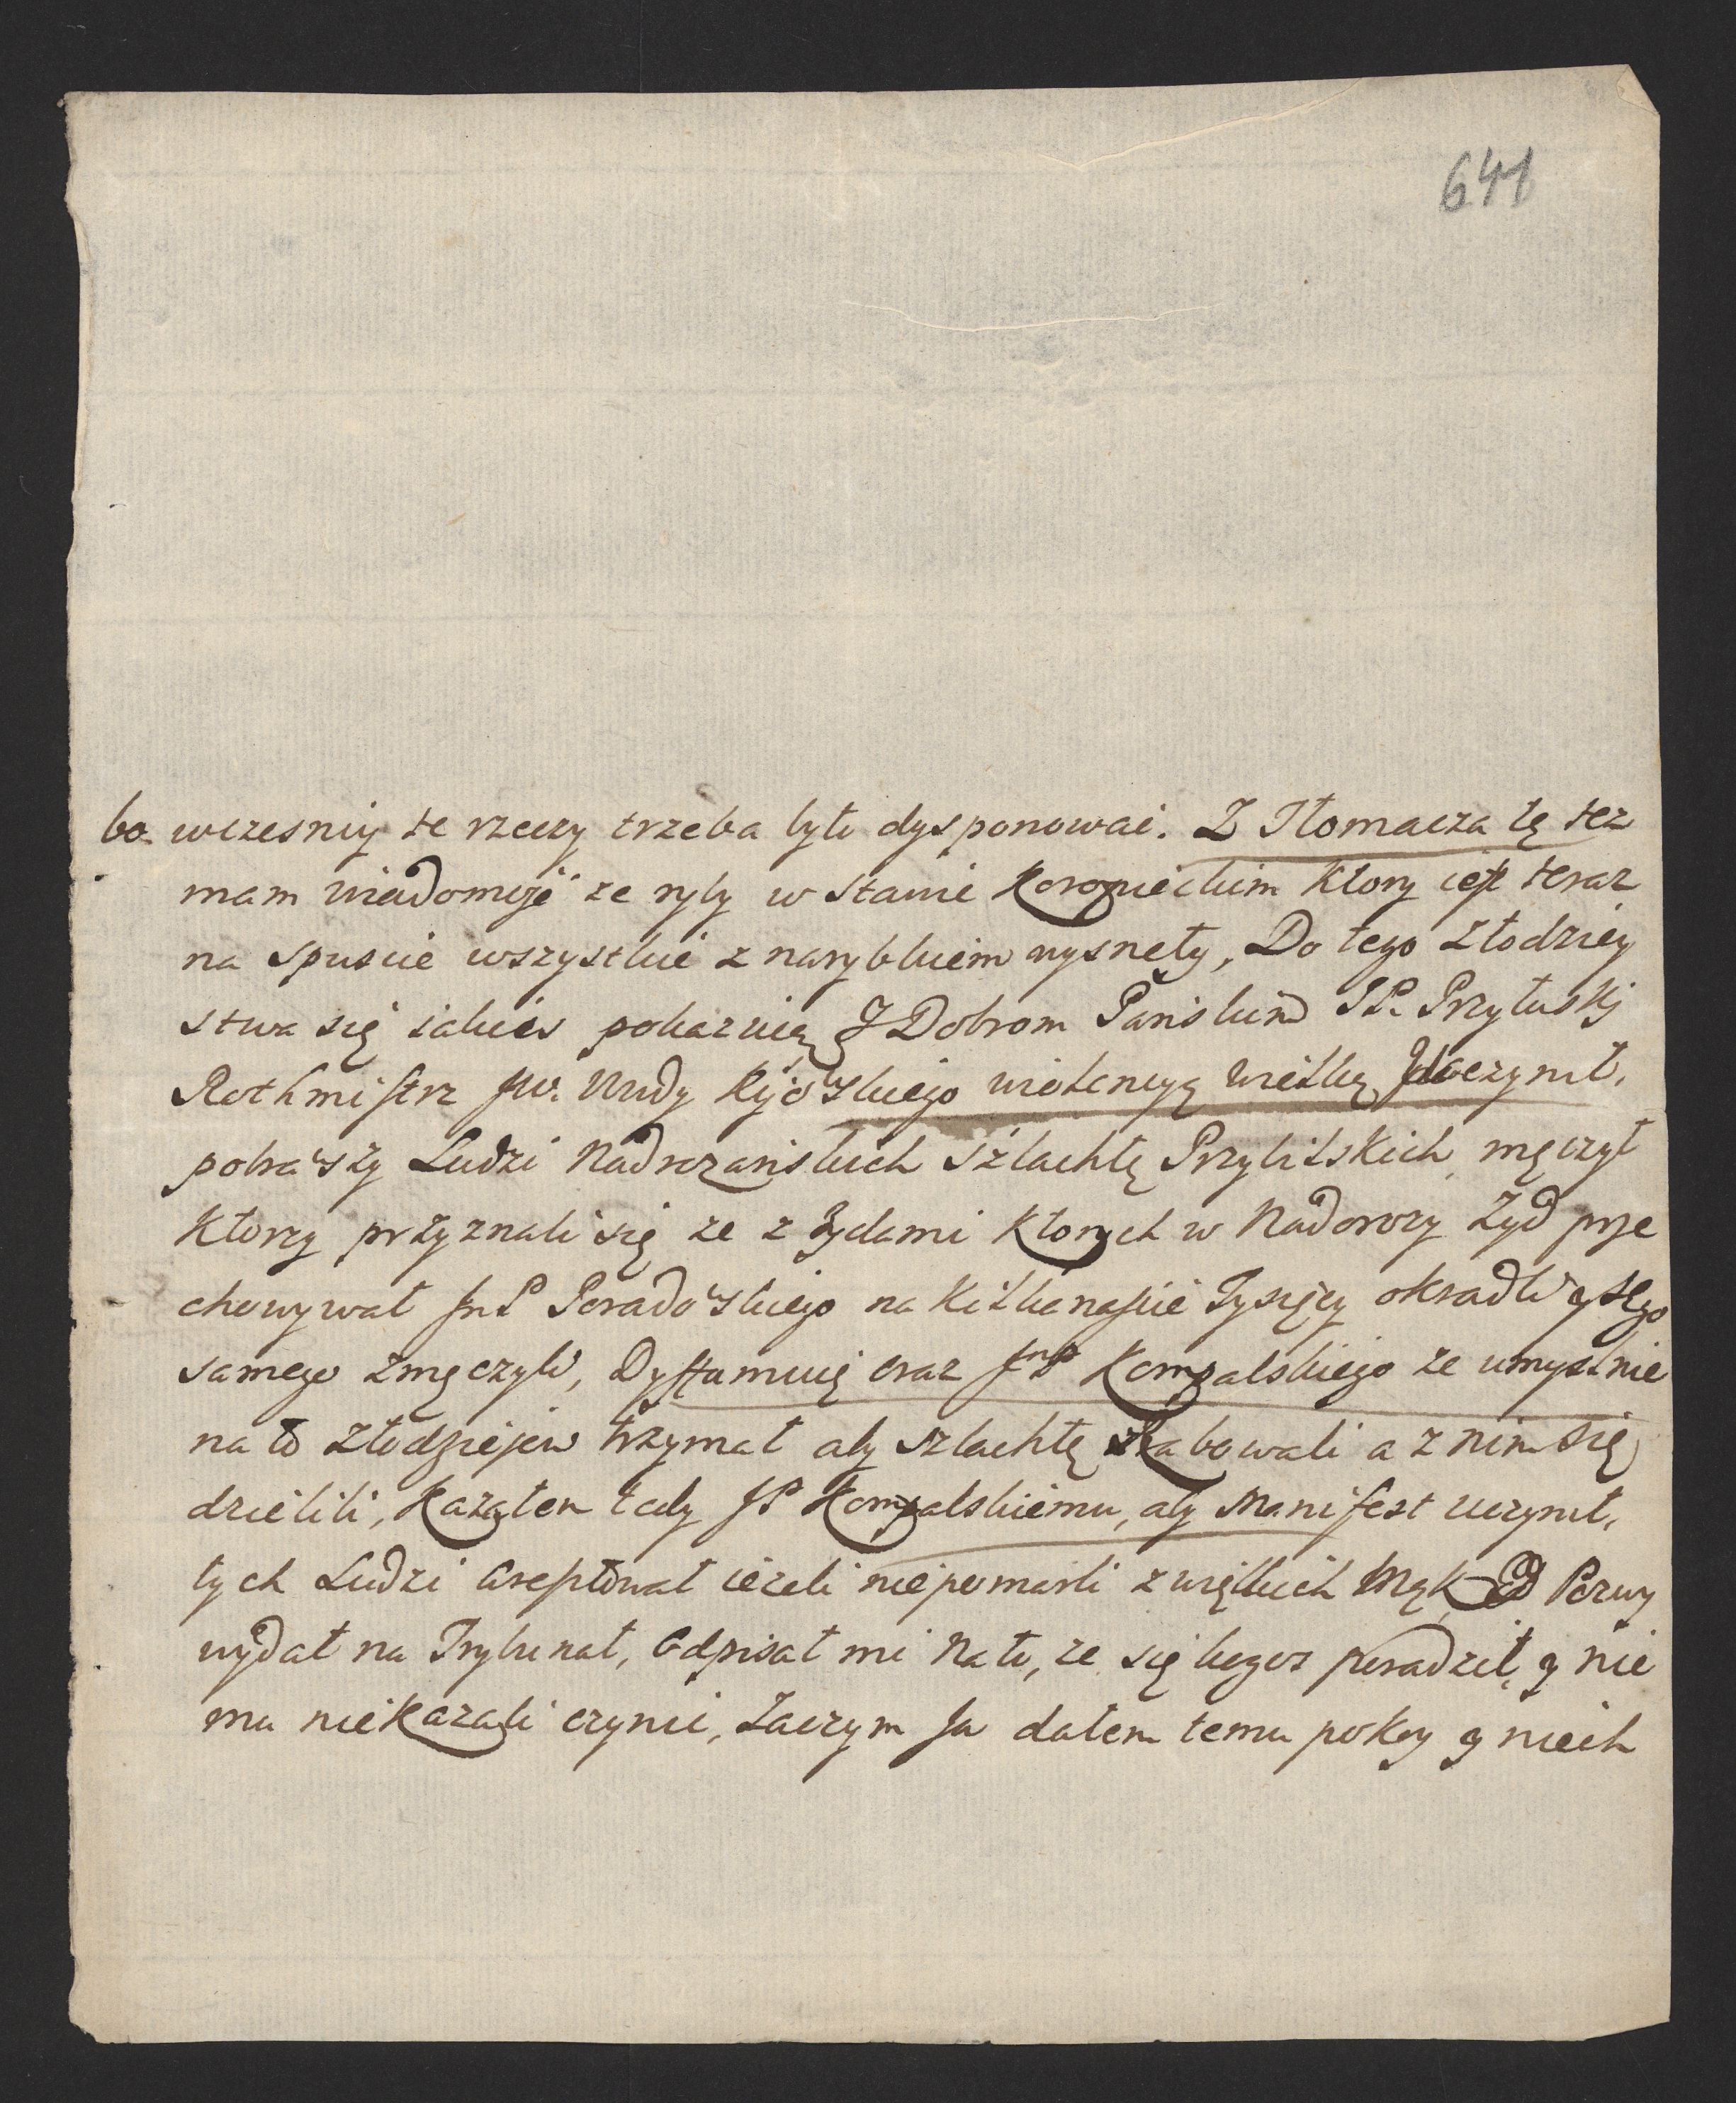 641
bo wczesniy te rzeczy trzeba było dysponowac. Z Tłomacza tę tez
mam wiadomość ze ryby w stawie Koropieckim Ktory iest teraz
na spuscie wszystkie z narybkiem wysneły, Do tego złodziey
stwa się iakies pokazuią Dobrom Panskim JP. Przyłuskj
Rothmistrz JW. Wudy Kijowskiego wiolencyą wielką uczynił,
pobrawszy Ludzi Nadrozanskich szlachtę Przybilskich męczył
Ktorzy przyznali się ze z Zydami Ktorych w Nadorozy Zyd prze
chowywał JmP Poradowskiego na Kilkanascie Tysięcy okradli y tego
samego zmęczyli, Dyffamuią oraz JmP Kompalskiego ze umyslnie
na to złodziejow trzymał aby szlachtę rabowali a z nim się
dzielili, Kazałem tedy JP Kompalskiemu, aby Manifest uczynił,
tych Ludzi aresztował iezeli niepomarli z wielkich Mąk Pozwy
wydał na Trybunał, Odpisał mi Na to, ze się kogos poradził, y nie
mu niekazali czynic, Zaczym Ja dałem temu pokoy y niech